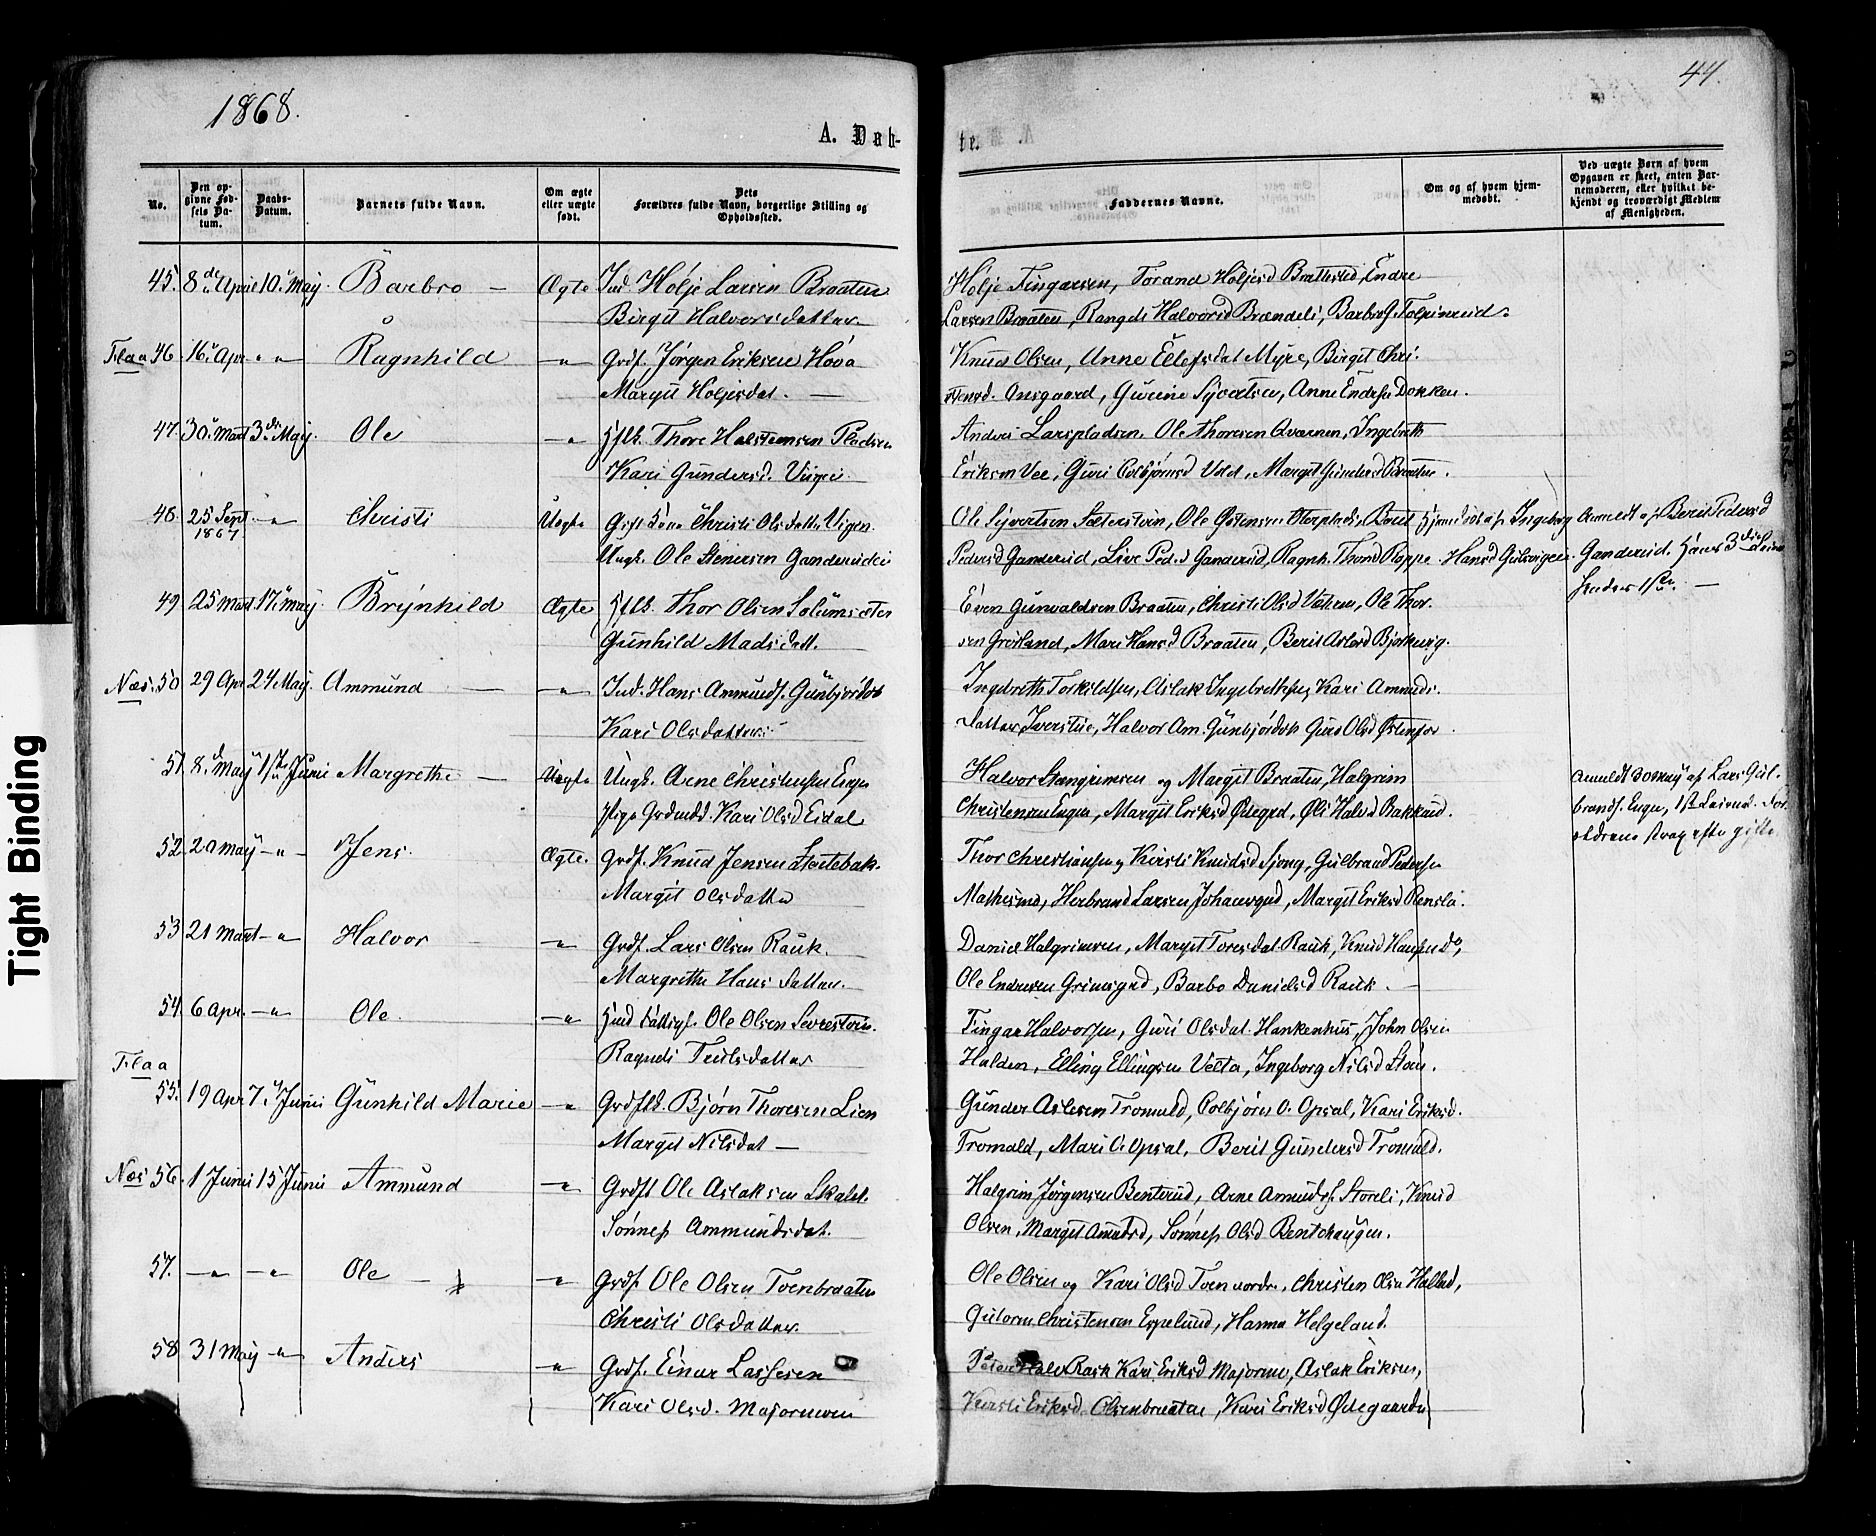 1868.
44.
A. Daab-
te.
No.
Den op-
givne Fød-
sels Da-
tum.
Daabs-
Datum.
Barnets fulde Navn.
Om ægte
eller uægte
født.
Dets
Forældres fulde Navn, borgerlige Stilling og
Opholdssted.
Faddernes Navne.
Om og af hvem hjem-
medøbt.
Ved uægte Børn af hvem
Opgaven er skeet, enten Bar-
nemoderen, eller hvilket be-
kjendt og troværdigt Medlem
af Menigheden.
45. 8de April 10. May. Barbro — Ægte Ind. Holje Larsen Braaten
Birgit Halvorsdatter.
Holje Fingarsen, Torand Holjesd Brattested, Endre
Larsen Braaten, Rangdi Halvorsd Brændeli, Barbro
Flaa 46. 16 Apr. " " Ragnhild —" Grdf. Jørgen Eriksen Hova
Margit Holjesdat. —
Knud Olsen, Anne Ellefsdat Myre, Birgit Chri-
stensd. Ansgaard, Guline Syvertsen, Anne Endresn Dokken.
47. 30. Mart 3. May. Ole —" Thore Halstensen Pladsen
Kari Gundersd. Viigei
Anders Larspladsen. Ole Thoresen Qvarnen, Ingebreth
Eriksen Vee, Guri Colbjørnsd Vold, Margit Gundersd Braaten.
48. 25 Sept. 1867 —" Christi Uægte Christi Olsdatter Vigen
Ungk. Ole Stenersen Ganderudei
Ole Syvertsen Sæterstøen, Ole Berit
Pedersd Ganderud, Live Ped.d Ganderud, Ragnh. Thorsd Roppe.
Hjemdøbt af Ingeborg
Hansd Gulsvigeie.
Anmeldt af Berit Pedersd
Ganderud. Hans 3die Leierm
hendes 1ste. —
49. 25 Mart 17. May Brynhild Ægte Thor Olsen Solumsæter
Gunhild Madsdatt.
Even Gunvaldsen Braaten, Christi Olsd Væhem, Ole Thor-
sen Grøsland, Mari Hansd Braaten, Berit Aslesd Bjørkevig.
Næs. 50 29 Apr 24 May. Ammund — —" Ind. Hans Ammunds. Gunbjørdok
Kari Olsdatter
Ingebreth Torkildsen, Aslak Ingebrethsen, Kari Amunds-
datter Iverstue, Halvor Am. Gunbjørdok Guro Olsd Østenfor.
51. 8. May 1ste Junii Margrethe — Uægte Ungk. Arne Christensen Engen
Pige Kari Olsd Eidal
Halvor Stengrimsen og Margit Braaten, Halgrim
Christensen Engen, Margit Eriksd Ødegrd, Øli Halvd Bakkerud.
Anmeldt 30 May af Lars Gul-
brands. Engen, 1ste Leierm. For-
ældrene strax efter gifte
52. 20 May —" Jens. Ægte. Grdf. Knud Jensen Stortebak.
Margit Olsdatter
Thor Christiansen og Kirsti Knudsd Sjong, Gulbrand Pedersen
Mathisrud, Herbrand Larsen Johansgrd, Margit Eriksd Rensli.
53 21 Mart —" Halvor —" Grdf. Lars Olsen Rauk.
Margrethe Hansdatter.
Daniel Halgrimsen, Margit Toresdat Rauk, Knud Hansen do,
Ole Endresen Grimsgrd, Barbo Danielsd Rauk. —
54. 6 Apr. —" Ole. —" Ole Olsen Sevrestøen.
Ragndi Trulsdatter
Fingar Halvorsen, Guri Olsdat. Hankenhus, John Olsen
Halden, Elling Ellingsen Velta, Ingeborg Nilsd Støen.
Flaa
55. 19 Apr. 7. Junii Gunhild Marie —" Bjørn Thoresen Lien
Margit Nilsdat —
Gunder Aslesen Tromald, Colbjørn O. Opsal, Kari Eriksd.
Tromald, Mari O. Opsal, Berit Gundersd Tromald.
Næs 56. 1 Junii 15 Junii Ammund —" Ole Aslaksen Skalst.
Sønnep Ammundsdat.
Halgrim Jørgensen Benterud, Arne Amunds. Storeli, Knud
Olsen, Margit Amundsd, Sønnep Olsd Bentehaugen.
57. —" —" Ole — —" Grdf. Ole Olsen Toenbraaten
Christi Olsdatter.
Ole Olsen og Kari Olsd Toen nordre, Christen Olsen Hallud,
Guttorm Christensen Espelund, Hanna Helgeland.
58 31 May —" Anders —" Grdf. Einar Lassesen
Kari Olsd. Majormoen
Peter Rask Kari Eriksd Majormo, Aslak Eriksen,
Kirsti Eriksd Olsenbraatae, Kari Eriksd Ødegaarden
Tight Binding